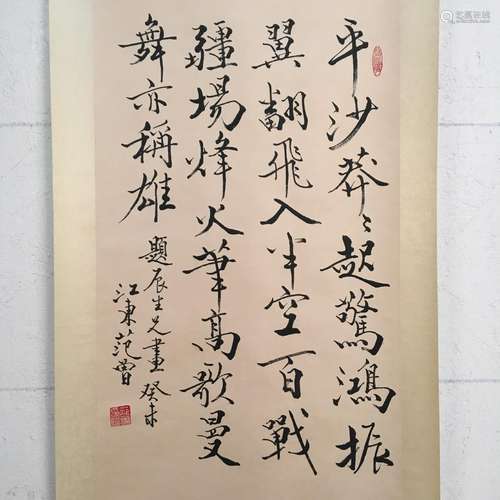 平沙莽〻起驚鴻振
翼翻飛入半空百戰
疆場烽火筆高歌曼
舞亦稱雄
題辰生兄畫 癸未
江東范曾